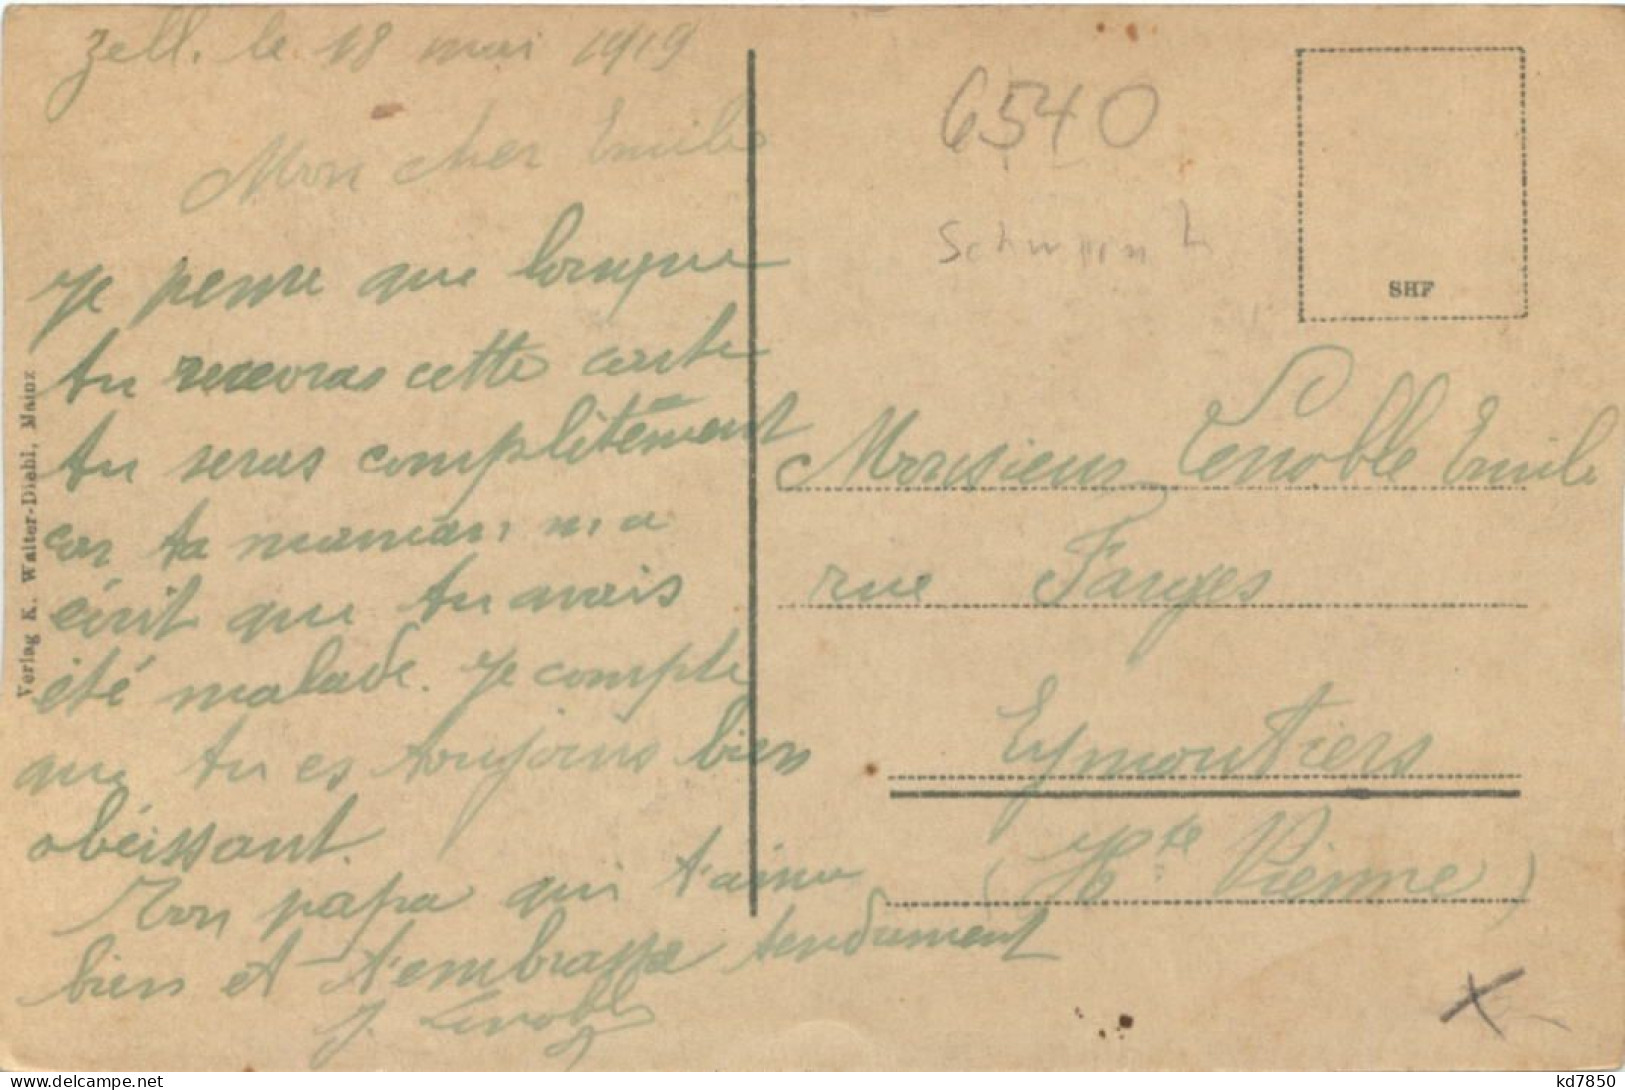 Zell. le 18 mai 1919
Mon cher Emile
Je pense que lorsque
tu recevras cette carte
tu seras complètement
car ta maman m'a
écrit que tu avais
été malade. Je compte
que tu es toujours bien
obéissant.
Ton papa qui t'aime
bien et t'embrasse tendrement
J. Lenoble
Verlag K. Walter-Diehl, Mainz
6540
SHF
Monsieur Lenoble Emile
rue Farges
Eymoutiers
(Hte Vienne)
kd7850